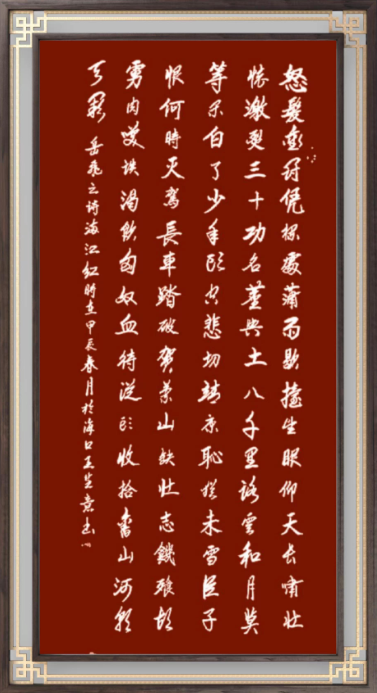 怒髮衝冠凭栏處瀟雨歇擡望眼仰天长啸壮
懷激烈三十功名塵與土八千里路雲和月莫
等闲白了少年头空悲切靖康恥犹未雪臣子
恨何時灭駕長車踏破賀兰山缺壮志饑飧胡
虏肉笑谈渴飲匈奴血待從头收拾舊山河朝
天阙 岳飛之詩滿江红時在甲辰春月於海口王生书